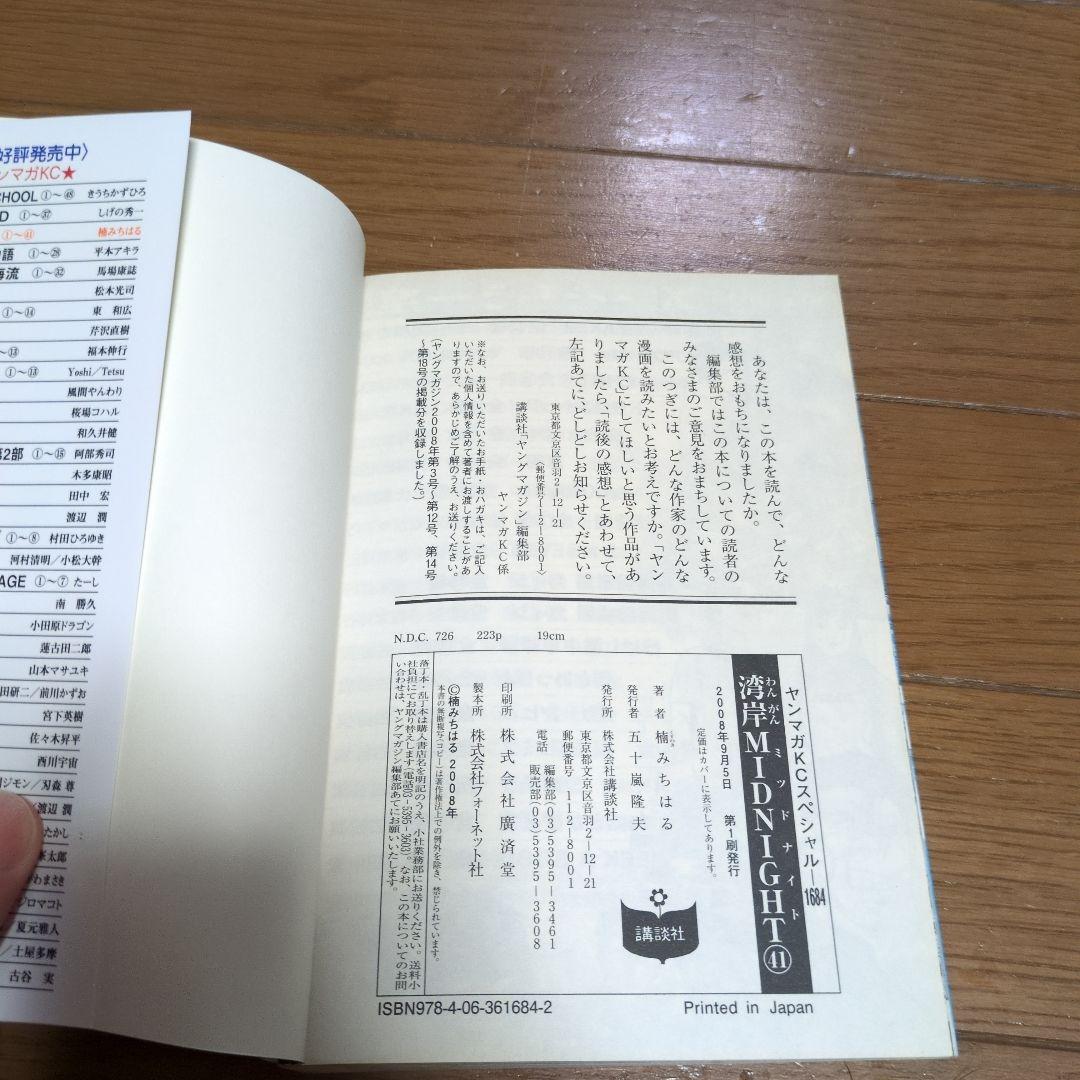 好評発売中〉
ンマガKC★
CHOOL ①〜㊽ きうちかずひろ
D ①〜㊲ しげの秀一
①〜㊶ 楠みちはる
語 ①〜㉘ 平本アキラ
海流 ①〜㉜ 馬場康誌
松本光司
①〜⑭ 東 和広
芹沢直樹
〜⑬ 福本伸行
①〜⑬ Yoshi/Tetsu
風間やんわり
桜場コハル
和久井健
第2部 ①〜⑮ 阿部秀司
木多康昭
田中 宏
渡辺 潤
①〜⑧ 村田ひろゆき
河村清明/小松大幹
AGE ①〜⑦ たーし
南 勝久
小田原ドラゴン
蓮古田二郎
山本マサユキ
田研二/前川かずお
宮下英樹
佐々木昇平
西川宇宙
ジモン/刃森 尊
渡辺 潤
たかし
太郎
わまさき
ジロマコト
夏元雅人
/土屋多摩
古谷 実
あなたは、この本を読んで、どんな
感想をおもちになりましたか。
編集部ではこの本についての読者の
みなさまのご意見をおまちしています。
このつぎには、どんな作家のどんな
漫画を読みたいとお考えですか。「ヤン
マガKC」にしてほしいと思う作品があ
りましたら、「読後の感想」とあわせて、
左記あてに、どしどしお知らせください。
東京都文京区音羽2-12-21
〈郵便番号112-8001〉
講談社「ヤングマガジン」編集部
ヤンマガKC係
※なお、お送りいただいたお手紙・おハガキは、ご記入
いただいた個人情報を含めて著者にお渡しすることがあ
りますので、あらかじめご了解のうえ、お送りください。
(ヤングマガジン2008年第3号〜第12号、第14号
〜第18号の掲載分を収録しました。)
N.D.C. 726 223p 19cm
ヤンマガKCスペシャル—1684
わんがん ミッドナイト
湾岸MIDNIGHT㊶
2008年9月5日 第1刷発行
定価はカバーに表示してあります。
著者 楠みちはる
発行者 五十嵐隆夫
発行所 株式会社講談社
東京都文京区音羽2-12-21
郵便番号 112-8001
電話 編集部(03)5395-3461
販売部(03)5395-3608
印刷所 株式会社廣済堂
製本所 株式会社フォーネット社
©楠みちはる 2008年
本書の無断複写(コピー)は著作権法上での例外を除き、禁じられています。
落丁本・乱丁本は購入書店名を明記のうえ、小社業務部にお送りください。送料小
社負担にてお取り替えします(電話03-5395-3603)。なお、この本についてのお問
い合わせは、ヤングマガジン編集部あてにお願いいたします。
講談社
ISBN978-4-06-361684-2
Printed in Japan